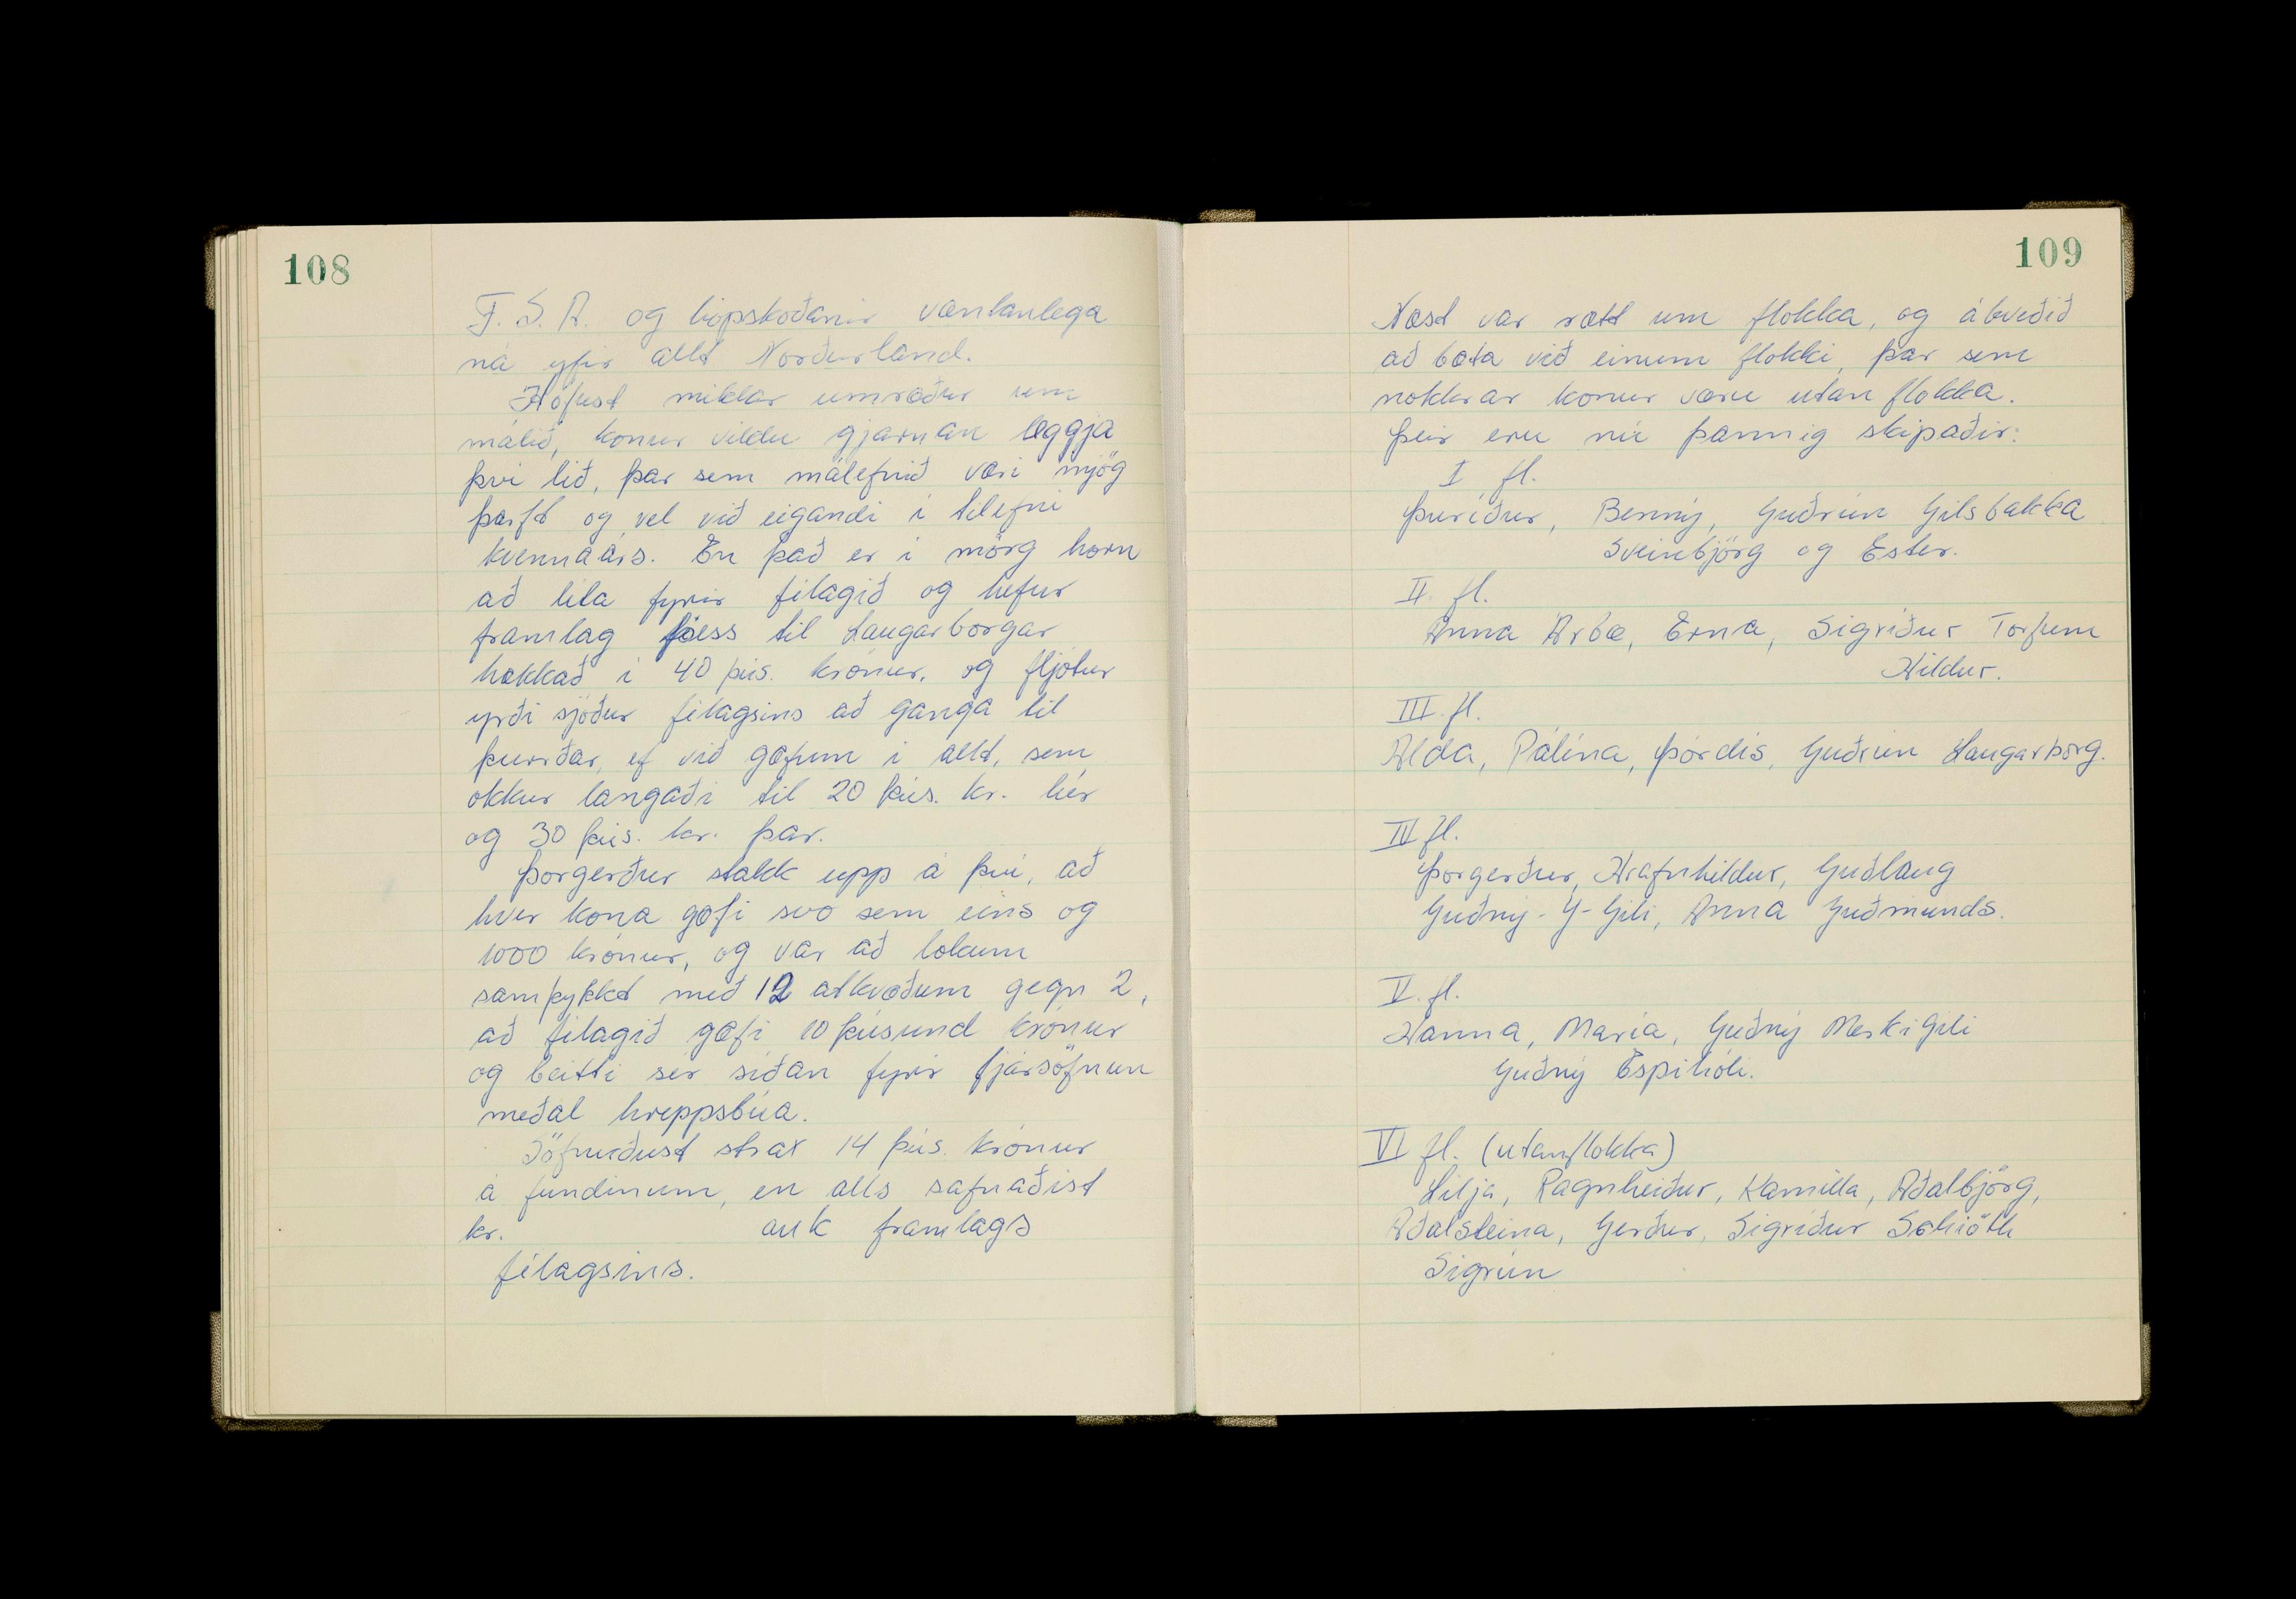 108
F.S.A. og hópskoðanir væntanlega
ná yfir allt Norðurland.
Hófust miklar umræður um
málið, konur vildu gjarnan leggja
því lið, þar sem málefnið væri mjög
þarft og vel við eigandi í tilefni
kvennaárs. En það er í mörg horn
að líta fyrir félagið og hefur
framlag þess til Laugarborgar
hækkað í 40 þús. krónur, og fljótur
yrði sjóður félagsins að ganga til
þurrðar, ef við gæfum í allt, sem
okkur langaði til 20 þús. kr. hér
og 30 þús. kr. þar.
Þorgerður stakk upp á því, að
hver kona gæfi svo sem eins og
1000 krónur, og var að lokum
samþykkt með 12 atkvæðum gegn 2,
að félagið gæfi 10 þúsund krónur
og beitti sér síðan fyrir fjársöfnun
meðal hreppsbúa.
Söfnuðust strax 14 þús. krónur
á fundinum, en alls safnaðist
kr. auk framlags
félagsins.
109
Næst var rætt um flokka, og ákveðið
að bæta við einum flokki, þar sem
nokkrar konur væru utan flokka.
Þeir eru nú þannig skipaðir:
I fl.
Þuríður, Benný, Guðrún Gilsbakka
Sveinbjörg og Ester.
II. fl.
Anna Árbæ, Erna, Sigríður Torfum
Hildur.
III. fl.
Alda, Pálína, Þórdís, Guðrún Laugarborg.
IV fl.
Þorgerður, Hrafnhildur, Guðlaug
Guðný - Y-Gili, Anna Guðmunds.
V. fl.
Hanna, María, Guðný Merkigili
Guðný Espihóli.
VI fl. (utanflokka)
Lilja, Ragnheiður, Kamilla, Aðalbjörg,
Aðalsteina, Gerður, Sigríður Schiöth
Sigrún